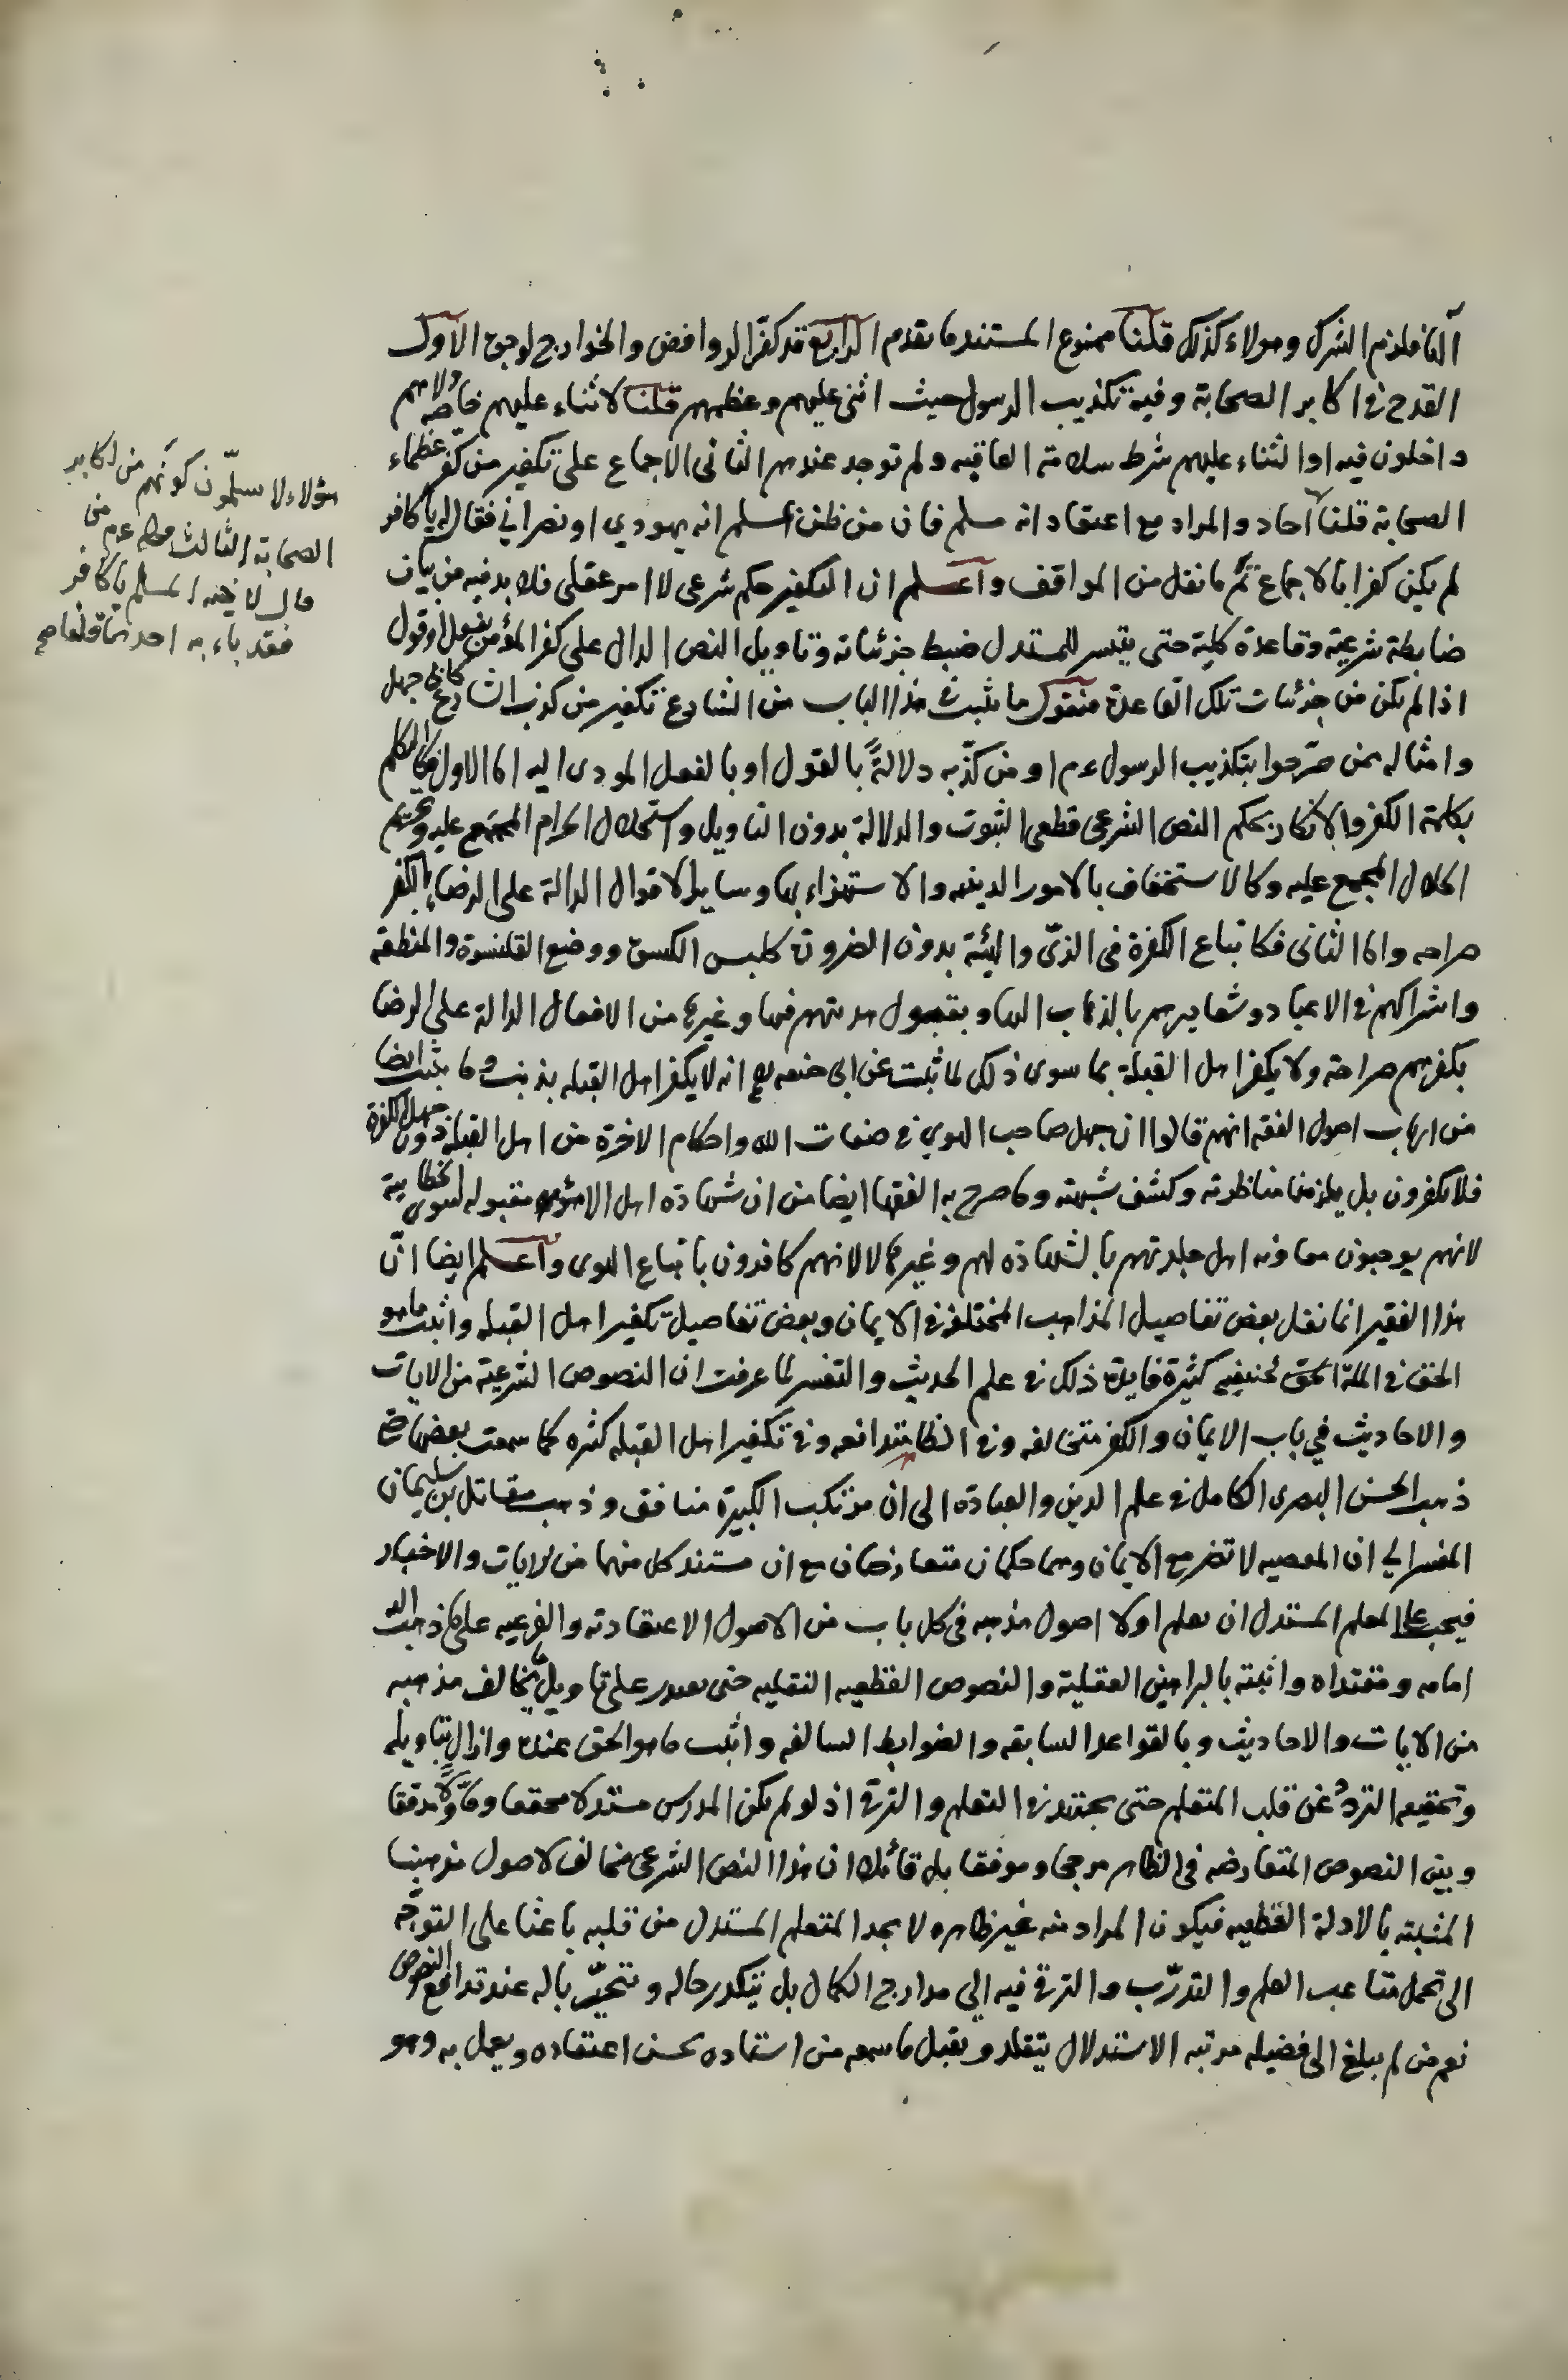 آلها فلزم الشرك وهولاء كذلك قلنا ممنوع المستند ما تقدم الرابع قد كفّر الروافض والخوارج لوجوه الأول
القدح في اكابر الصحابة وفيه تكذيب الرسول حيث اثنى عليهم وعظمهم قلنا لا ثناء عليهم خاصة ولا هم
داخلون فيه او الثناء عليهم شرط سلامة العاقبه ولم توجد عندهم الثانى الاجماع على تكفير من كفر عظماء
الصحابة قلنا آحاد والمراد مع اعتقاد انه مسلم فان من ظن المسلم انه يهودي او نصراني فقال له يا كافر
لم يكن كفرا بالاجماع تم ما نقل من المواقف واعلم ان التكفير حكم شرعى لا امر عقلى فلا بد فيه من بيان
ضابطة شرعية وقاعدة كلية حتى يتيسر للمستدل ضبط جزئياته وتاويل النص الدال على كفر المؤمن بفعل او قول
اذا لم تكن من جزئيات تلك القاعدة فنقول ما يثبت في هذا الباب من الشارع تكفير من كذب الشارع كابى جهل
وامثاله ممن صرّحوا بتكذيب الرسول عم او من كذّبه دلالةً بالقول او بالفعل المودى اليه اما الاول فكالتكلم
بكلمة الكفر والانكار بحكم النص الشرعى قطعى الثبوت والدلالة بدون التاويل واستحلال الحرام المجمع عليه وتحريم
الحلال المجمع عليه وكالاستخفاف بالامور الدينيه والاستهزاء بها وساير الاقوال الدالة على الرضاء بالكفر
صراحه واما الثانى فكاتباع الكفرة فى الزىّ والهيئة بدون الضرورة كلبس الكسوة ووضع القلنسوة والمنطقه
واشراكهم في الاعياد وشعايرهم بالذهاب اليها وبقبول هديتهم فيها وغيرها من الافعال الدالة على الرضا
بكفرهم صراحة ولا يكفر اهل القبلة بما سوى ذلك لما ثبت عن ابى حنيفه رح انه لا يكفر اهل القبله بذنب وما يثبت ايضا
من ارباب اصول الفقه انهم قالوا ان جهل صاحب الهوي في صفات الله واحكام الاخرة من اهل القبلة دون جهل الكفرة
فلا يكفرون بل يلزمنا مناظرته وكشف شبهته وما صرح به الفقها ايضا من ان شهادة اهل الاهواء مقبوله سوى الخطابية
لانهم يوجبون معاونه اهل جلدتهم بالشهادة لهم وغيرها لا لانهم كافرون باتباع الهوى واعلم ايضا انّ
هذا الفقير انما نقل بعض تفاصيل المذاهب المختلفة في الايمان وبعض تفاصيل تكفير اهل القبله واثبت ما هو
الحق في الملة الحق الحنيفية كثيرة فايدة ذلك في علم الحديث والتفسير لما عرفت ان النصوص الشرعية من الايات
والاحاديث في باب الايمان والكفر متخالفه وفي الظاهر متدافعه وفي تكفير اهل القبله كثيره كما سمعت بعضها
ذهب الحسن البصرى الكامل في علم الدين والعبادة الى ان مرتكب الكبيرة منافق وذهب مقاتل بن سليمان
المفسر الي ان المعصيه لا تضر مع الايمان وهما حكمان متعارضان مع ان مستند كل منهما من الايات والاخبار
فيجب على المعلم المستدل ان يعلم اولا اصول مذهبه فى كل باب من الاصول الاعتقادية والفرعيه على ما ذهب اليه
امامه ومقتداه واثبته بالبراهين العقلية والنصوص القطعيه النقليه حتى يقدر على تاويل ما يخالف مذهبه
من الايات والاحاديث وبالقواعد السابقه والضوابط السالفه واثبت ما هو الحق عنده وازال بتاويله
وتحقيقه التردد عن قلب المتعلم حتى يجتهد في التعلم والترقي اذ لو لم يكن المدرس مستدلا محققا ومأوّلا مدققا
وبين النصوص المتعارضه في الظاهر مرجحا وموفقا بل قائلا ان هذا النص الشرعى مخالف لاصول مذهبنا
المثبته بالادلة القطعيه فيكون المراد منه غير ظاهره لا يجد المتعلم المستدل من قلبه باعثا على التوجّه
الى تحمل متاعب العلم والتدرّب والترقي فيه الي مدارج الكمال بل يتكدر حاله ويتحيّر باله عند تدافع النصوص
نعم من لم يبلغ الى فضيله مرتبه الاستدلال يتقلد ويقبل ما سمعه من استاده بحسن اعتقاده ويعمل به وهو
هؤلاء لا يسلّمون كونهم من اكابر
الصحابة الثالث قوله عم من
قال لاخيه المسلم يا كافر
فقد باء به احدهما قلنا مع